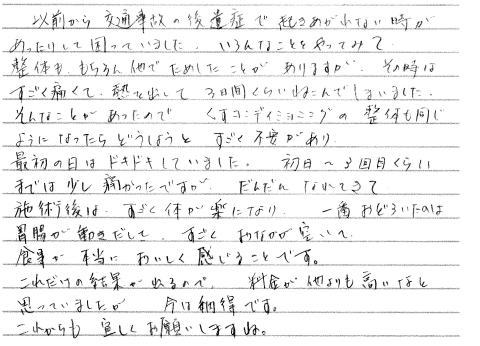 以前から 交通事故の後遺症で 起きあがれない時が
あったりして困っていました。 いろんなことをやってみて
整体も、もちろん他でためしたことが ありますが、 その時は
すごく痛くて、熱を出して 3日間くらいねこんでしまいました。
そんなことがあったので くすコンディショニングの 整体も同じ
ようになったらどうしようと すごく不安があり、
最初の日はドキドキしていました。 初日～3回目くらい
までは少し痛かったですが、 だんだん なれてきて
施術後は、すごく体が楽になり、 一番おどろいたのは
胃腸が動きだして、すごく おなかが空いて、
食事が本当に おいしく感じることです。
これだけの結果が出るので、 料金が他よりも高いなと
思っていましたが 今は納得です。
これからも 宜しくお願いしますね。